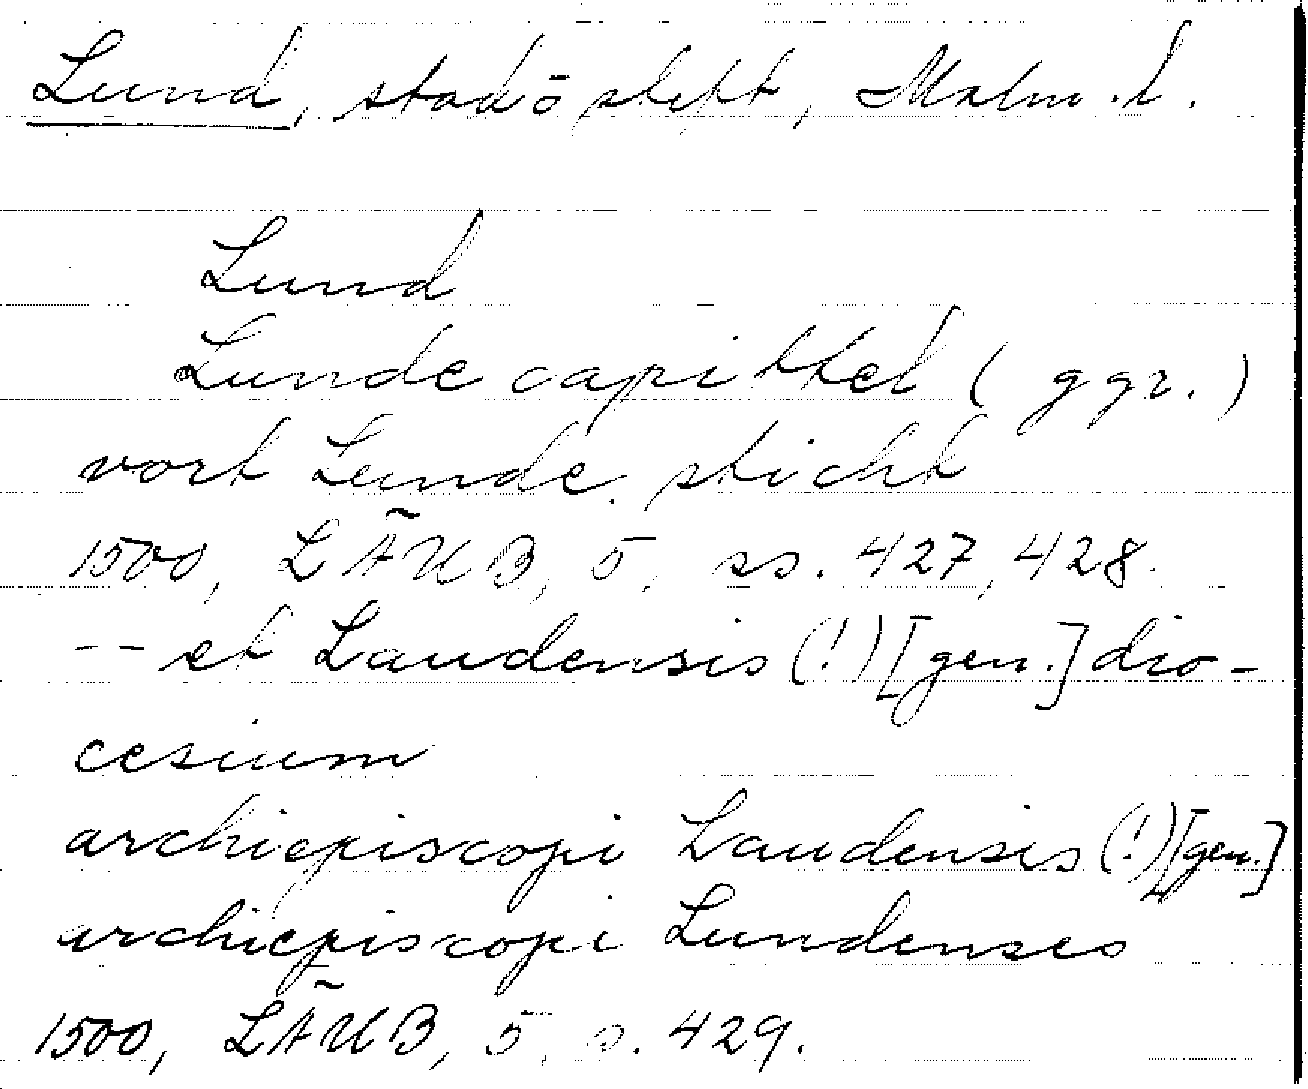 Lund, stad o stift, Malm. l.
Lund
Lunde capittel (ggr.)
vort Lunde sticht
1500, LÄUB, 5, ss. 427, 428.
-- et Laudensis (!) [gen.] dio-
cesium
archiepiscopi Laudensis (!) [gen.]
archiepiscopi Lundenses
1500, LÄUB, 5, s. 429.